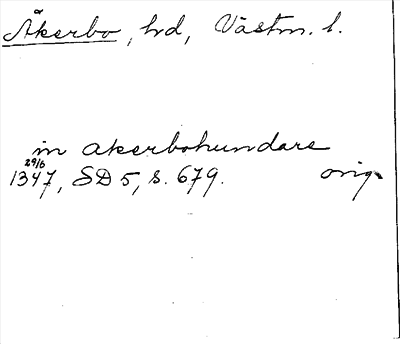 Åkerbo, hd, Västm. l.
in akerbohundare
29/6
1347, SD 5, s. 679. orig.